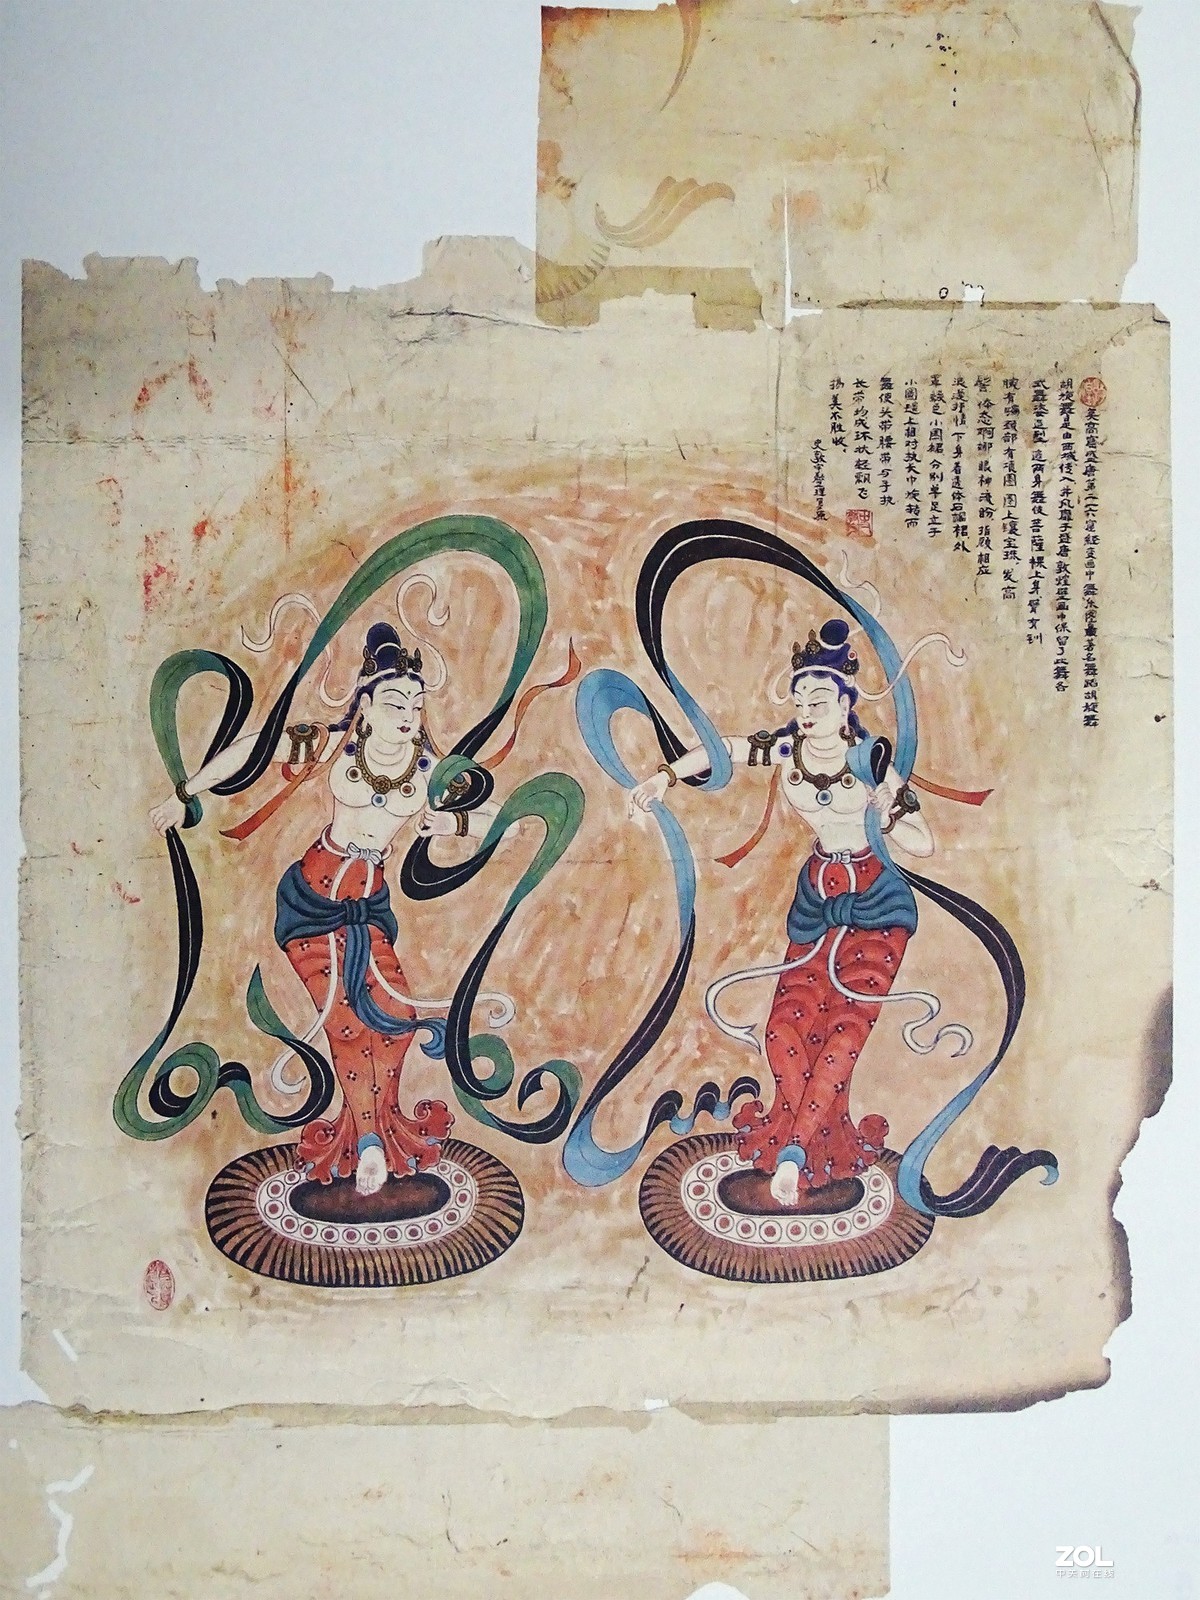 莫高窟盛唐第二一六窟经变画中舞乐图最著名舞蹈胡旋舞
胡旋舞是由西域传入并风靡于盛唐敦煌壁画中保留了此舞各
式舞姿造型这两身舞伎菩萨裸上身臂有钏
腕有镯颈部有项圈圈上镶宝珠发高
髻体态婀娜眼神流盼指顾相应
下身着透体石榴裙外
小圆毯分别单足立于
小圆毯上相对执长巾旋转而
舞使头带腰带与手执
长带均成环状轻飘飞
扬美不胜收
ZOL
中关村在线